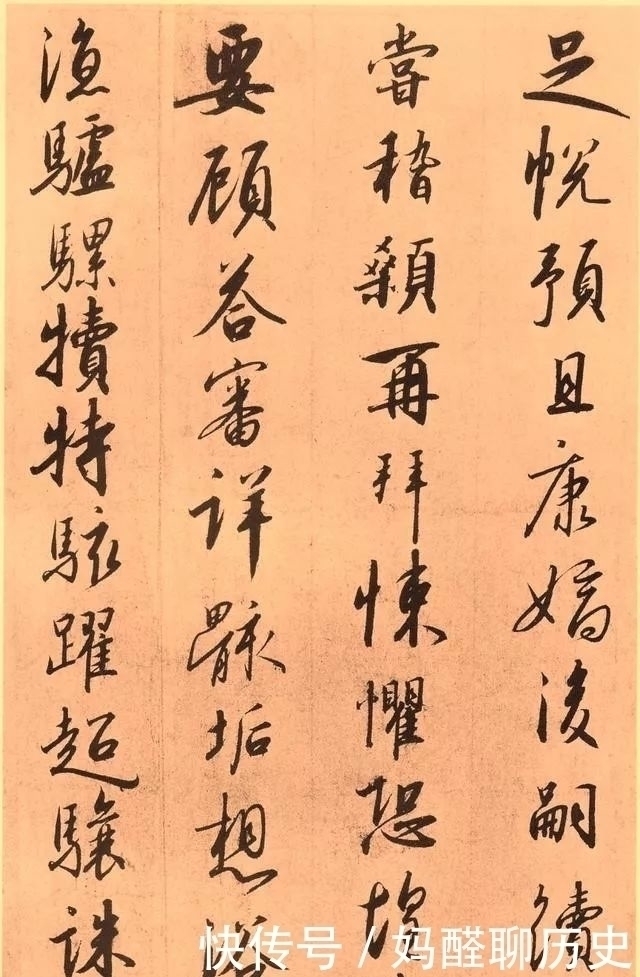 足悅預且康嫡後嗣續
嘗稽顙再拜悚懼恐
要顧答審詳骸垢想
涼驢騾犢特駭躍超驤誅
快传号 / 妈醛聊历史